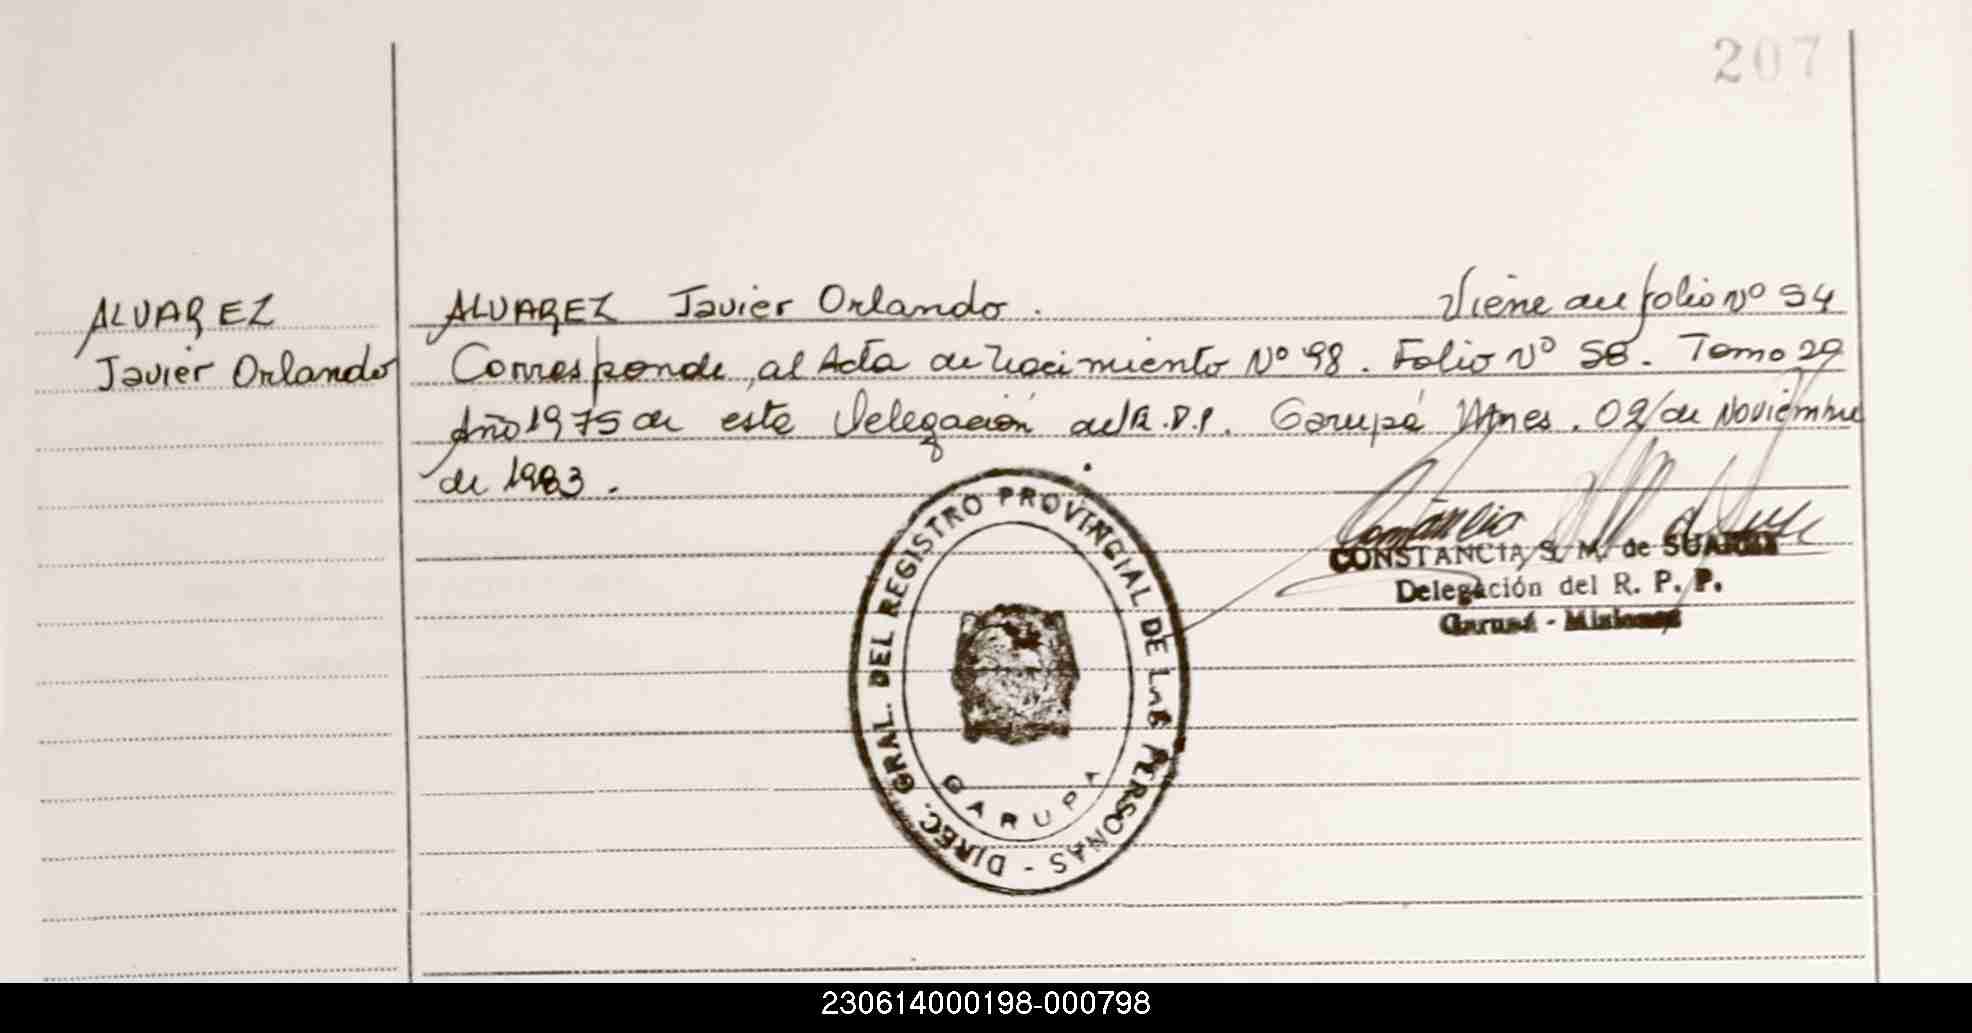 207
ALVAREZ
Javier Orlando
ALVAREZ Javier Orlando. Viene del folio Nº 54
Corresponde al Acta de Nacimiento Nº 98. Folio Nº 58. Tomo 29
Año 1975 de esta Delegación del R.P.P. Garupá Mnes. 02/de Noviembre
de 1983.
CONSTANCIA S. M. de SUAREZ
Delegación del R. P. P.
Garupá - Misiones
DIREC. GRAL. DEL REGISTRO PROVINCIAL DE LAS PERSONAS -
GARUPA
230614000198-000798